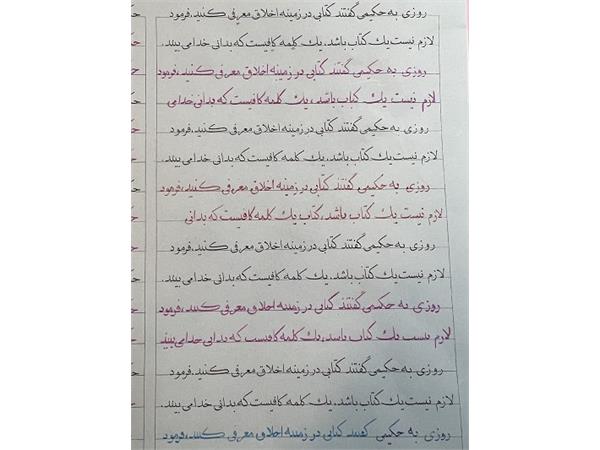 روزی به حکیمی گفتند کتابی در زمینه اخلاق معرفی کنید. فرمود
لازم نیست یك کتاب باشد. یك کلمه کافیست که بدانی خدا می بیند.
روزی به حکیمی گفتند کتابی در زمینه اخلاق معرفی کنید، فرمود
لازم نیست یك کتاب باشد، یك کلمه کافیست که بدانی خدا می
روزی به حکیمی گفتند کتابی در زمینه اخلاق معرفی کنید. فرمود
لازم نیست یك کتاب باشد. یك کلمه کافیست که بدانی خدا می بیند.
روزی به حکیمی گفتند کتابی در زمینه اخلاق معرفی کنید، فرمود
لازم نیست یك کتاب باشد، کتاب یك کلمه کافیست که بدانی
روزی به حکیمی گفتند کتابی در زمینه اخلاق معرفی کنید. فرمود
لازم نیست یك کتاب باشد. یك کلمه کافیست که بدانی خدا می بیند.
روزی به حکیمی گفتند کتابی در زمینه اخلاق معرفی کنید، فرمود
لازم نیست یك کتاب باشد، یك کلمه کافیست که بدانی خدا می بیند
روزی به حکیمی گفتند کتابی در زمینه اخلاق معرفی کنید. فرمود
لازم نیست یك کتاب باشد. یك کلمه کافیست که بدانی خدا می بیند.
روزی به حکیمی گفتند کتابی در زمینه اخلاق معرفی کنید، فرمود